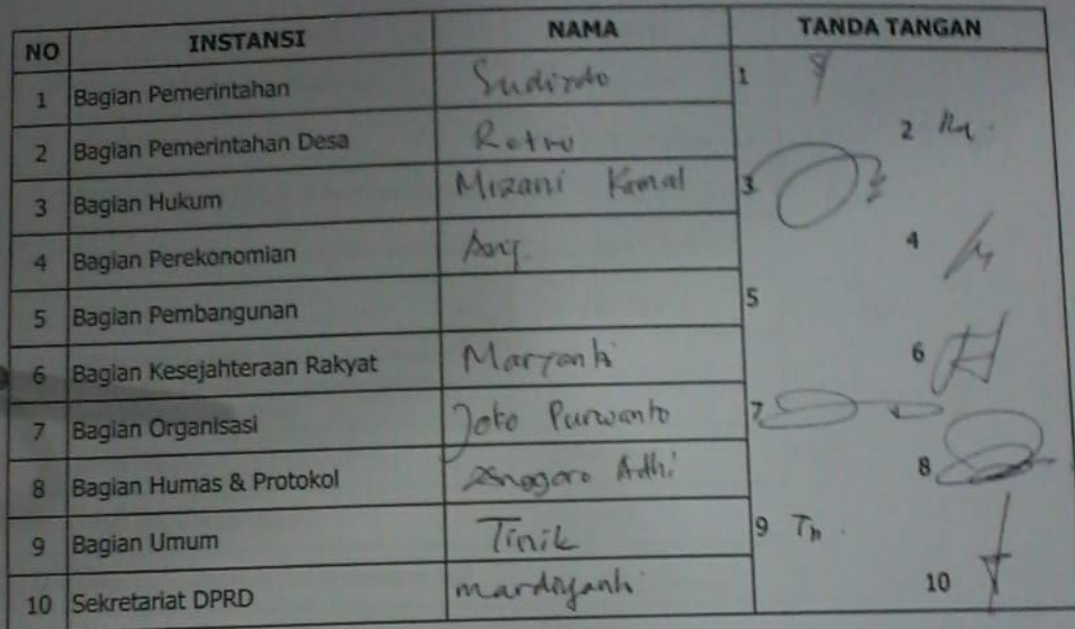 NO INSTANSI NAMA TANDA TANGAN
1 Bagian Pemerintahan Sudirdo 1
2 Bagian Pemerintahan Desa Retno 2
3 Bagian Hukum Mizani Kamal 3
4 Bagian Perekonomian 4
5 Bagian Pembangunan 5
6 Bagian Kesejahteraan Rakyat Maryanti 6
7 Bagian Organisasi Joko Purwanto 7
8 Bagian Humas & Protokol Anggoro Adhi 8
9 Bagian Umum Tinik 9 Tn.
10 Sekretariat DPRD mardiyanti 10